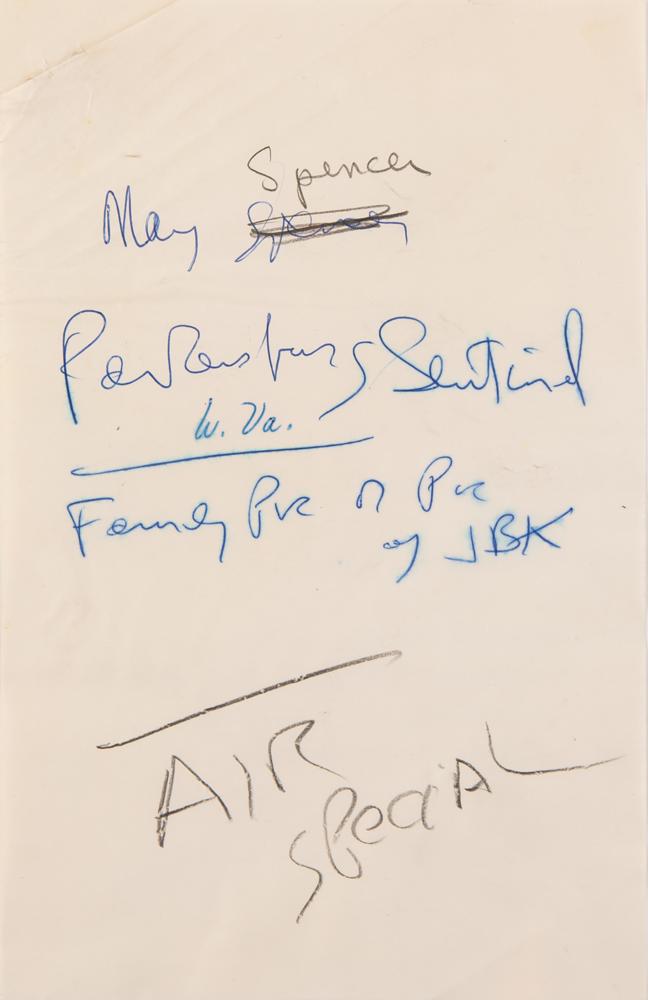 Spencer
May Spencer
Parkersburg Sentinel
W. Va.
Family Pic or Pic
of JBK
AIR
SPECIAL